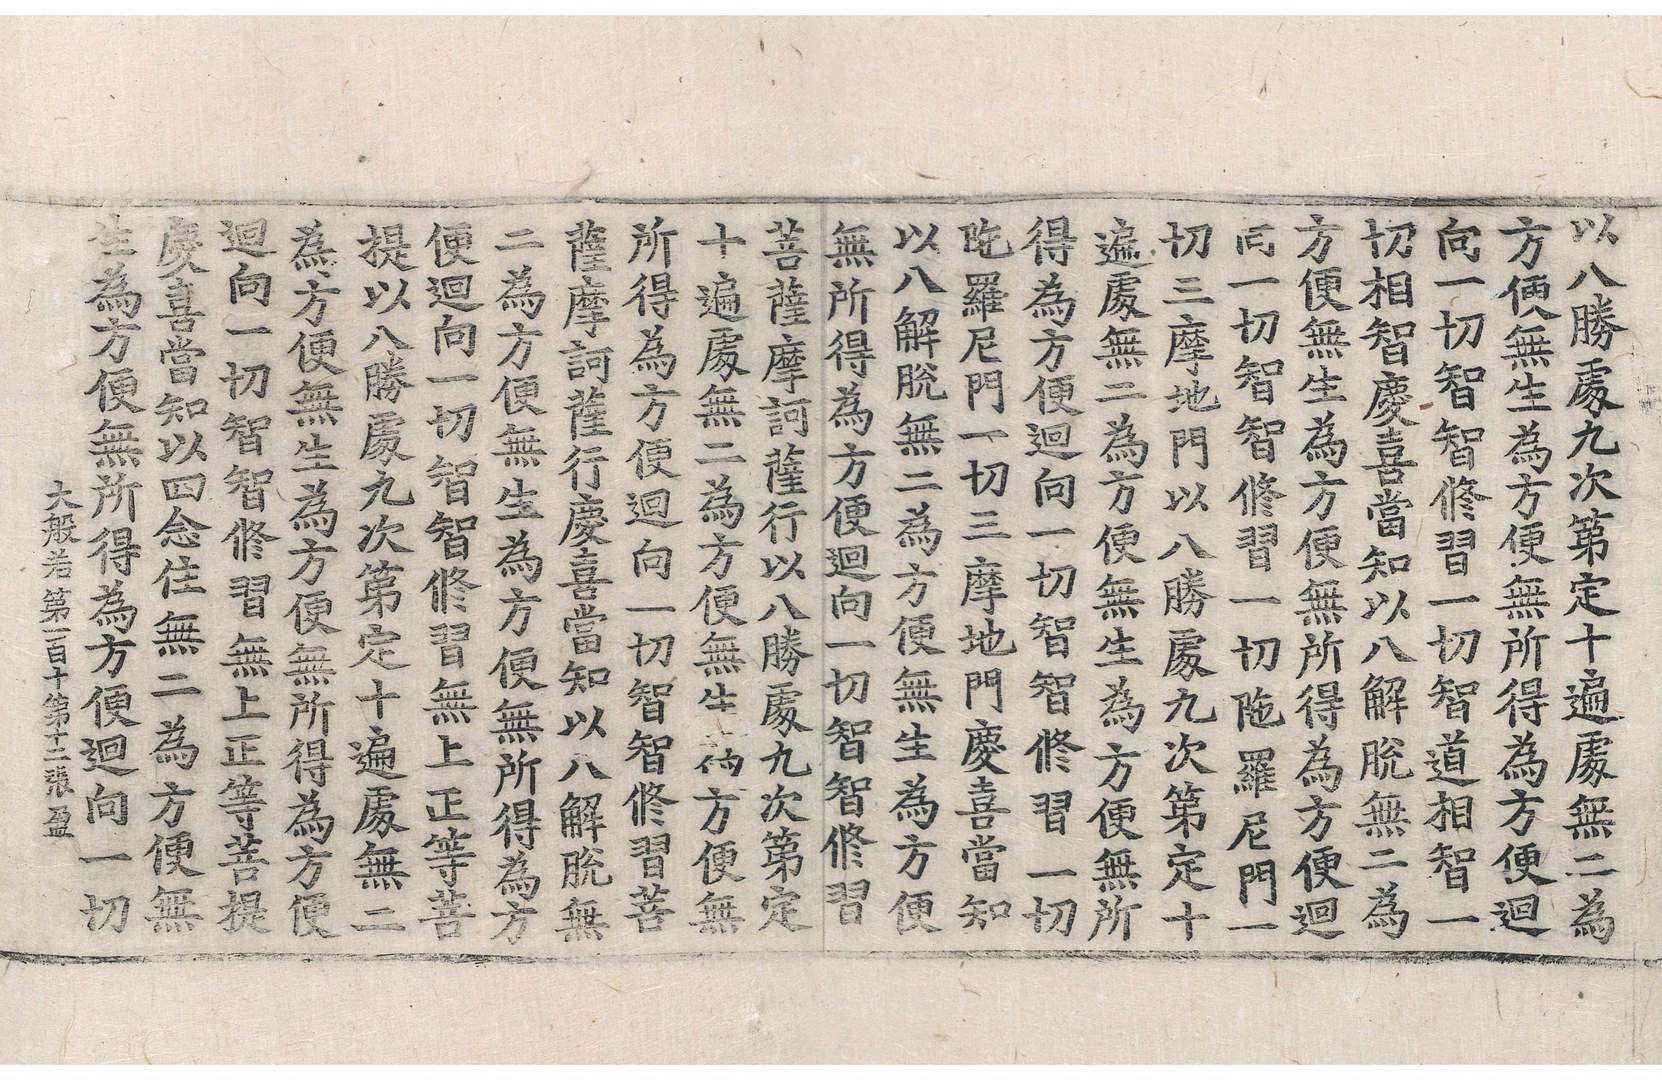 以八勝處九次第定十遍處無二為
方便無生為方便無所得為方便迴
向一切智智修習一切智道相智一
切相智慶喜當知以八解脫無二為
方便無生為方便無所得為方便迴
向一切智智修習一切陁羅尼門一
切三摩地門以八勝處九次第定十
遍處無二為方便無生為方便無所
得為方便迴向一切智智修習一切
陁羅尼門一切三摩地門慶喜當知
以八解脫無二為方便無生為方便
無所得為方便迴向一切智智修習
菩薩摩訶薩行以八勝處九次第定
十遍處無二為方便無生為方便無
所得為方便迴向一切智智修習菩
薩摩訶薩行慶喜當知以八解脫無
二為方便無生為方便無所得為方
便迴向一切智智修習無上正等菩
提以八勝處九次第定十遍處無二
為方便無生為方便無所得為方便
迴向一切智智修習無上正等菩提
慶喜當知以四念住無二為方便無
生為方便無所得為方便迴向一切
大般若第一百十第十二張 盈